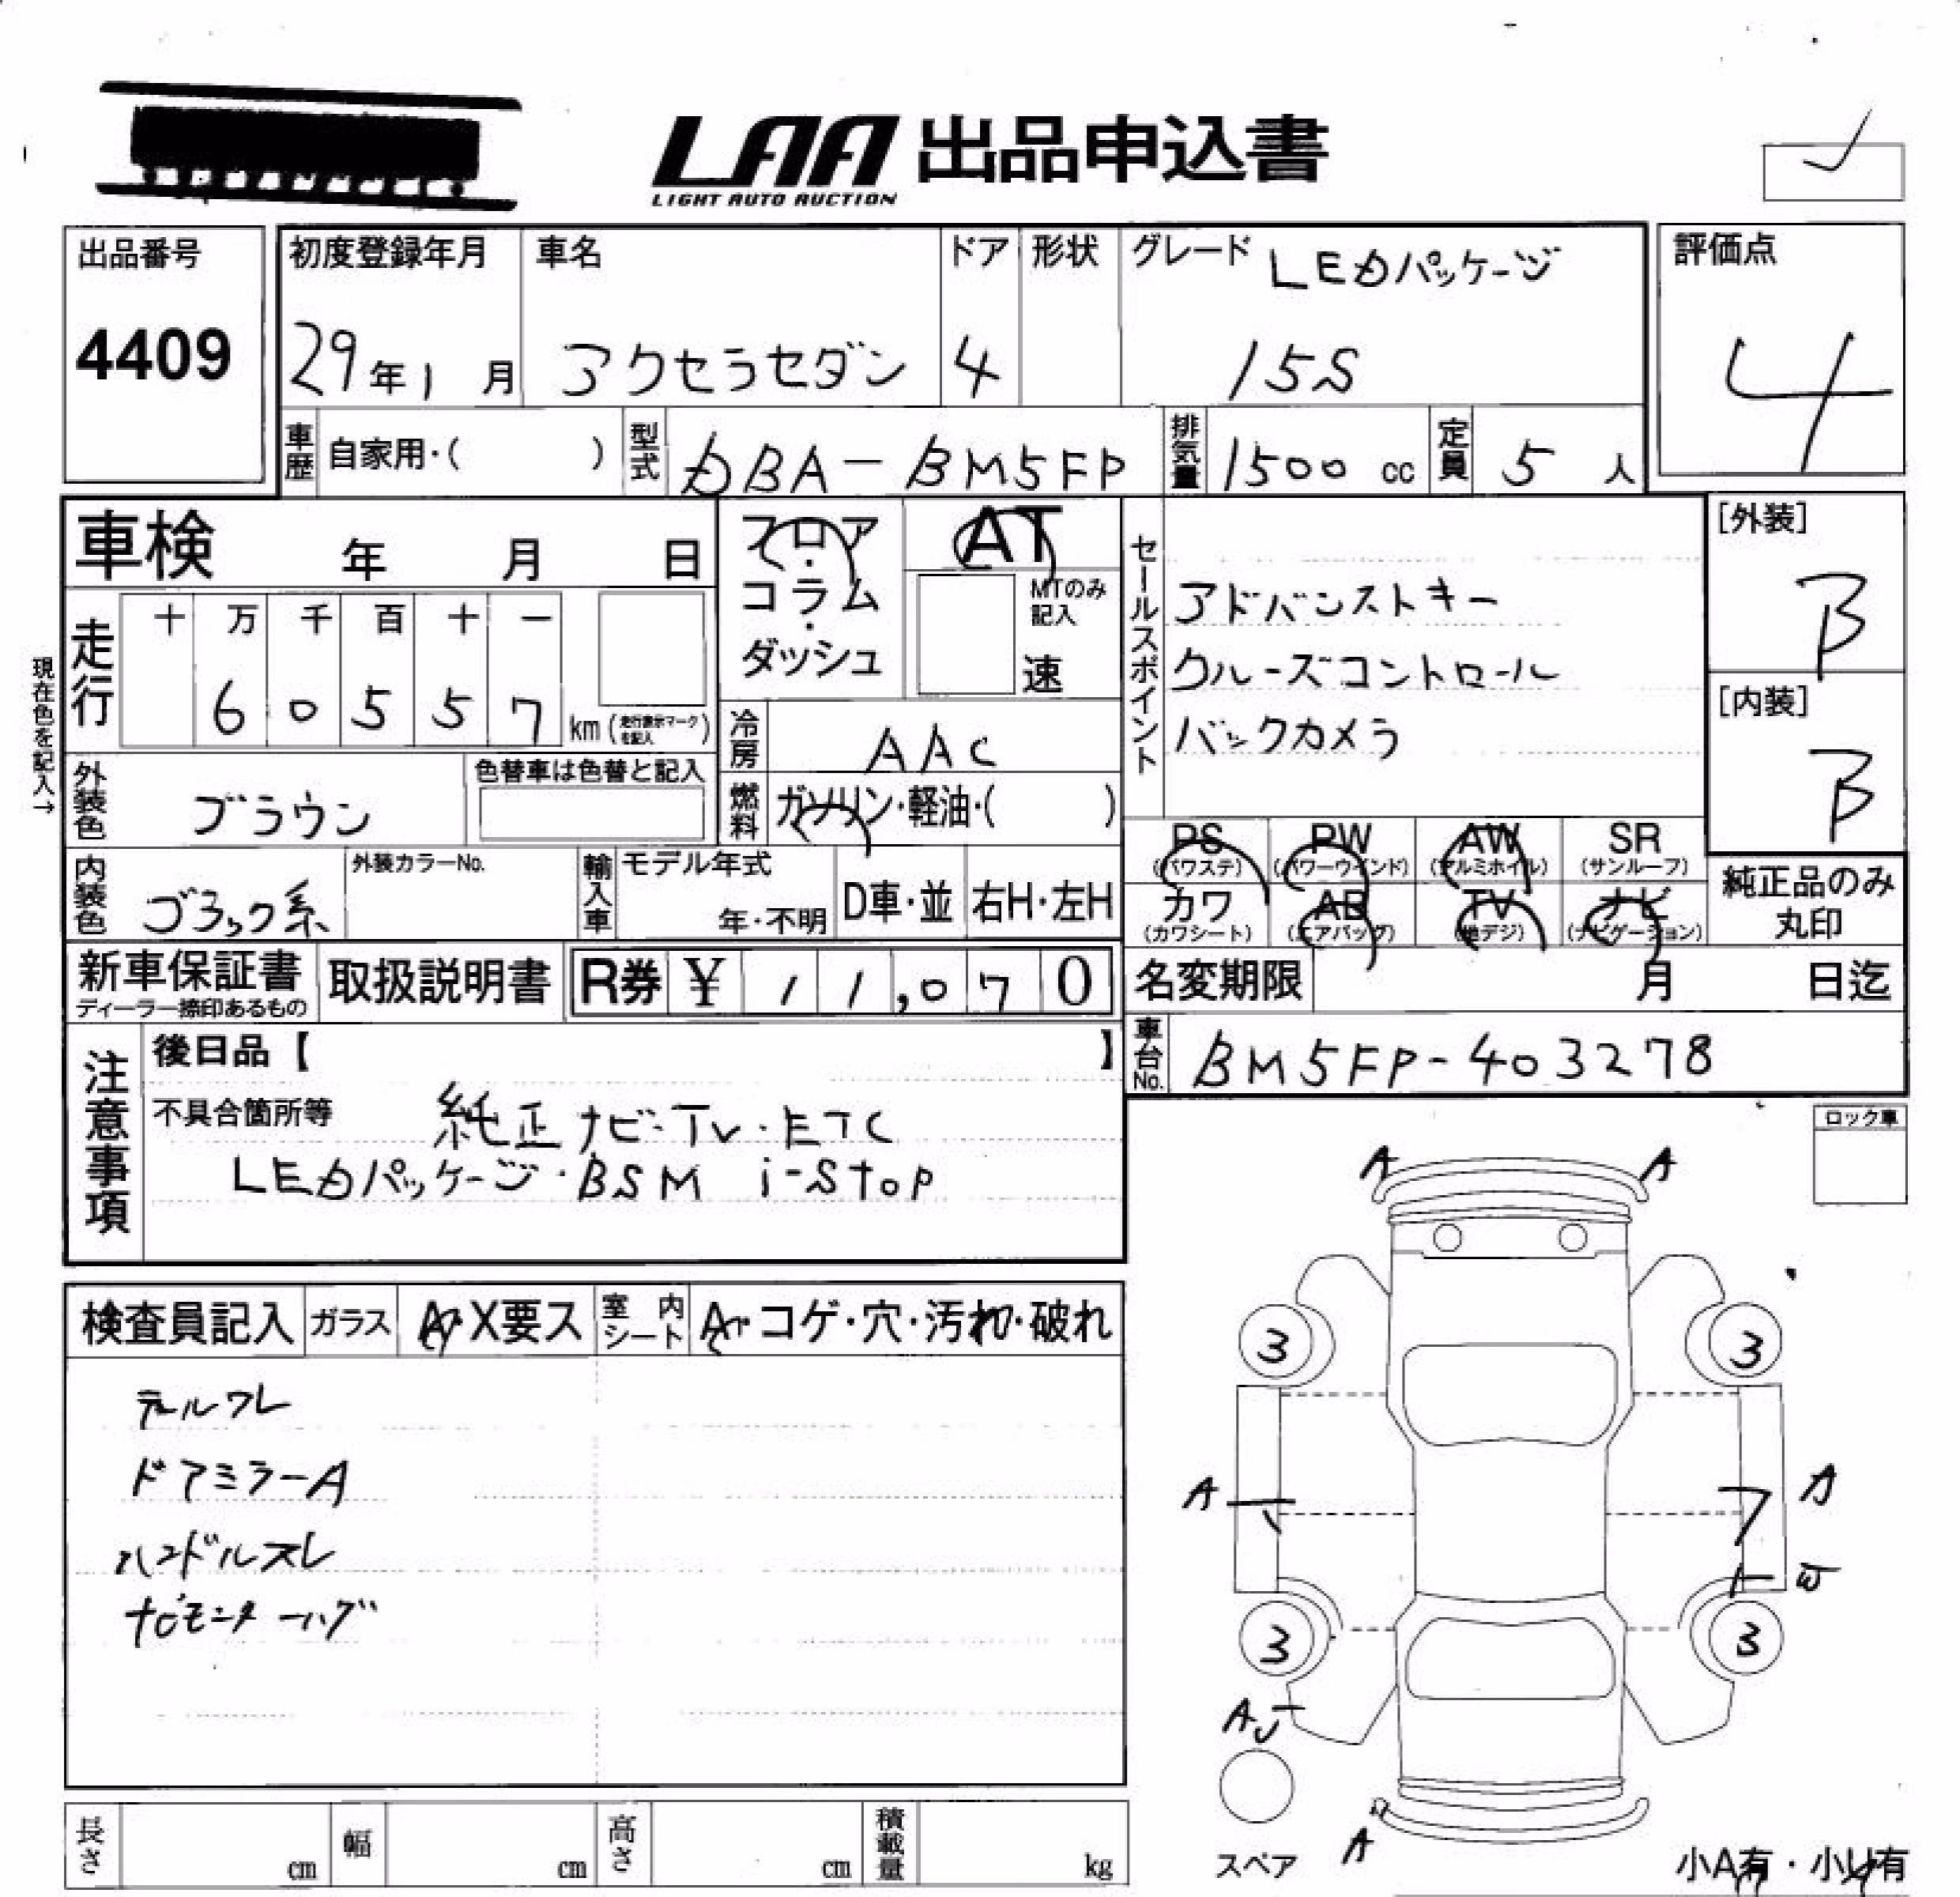 LAA 出品申込書
LIGHT AUTO AUCTION
出品番号
4409
初度登録年月
29年1月
車名
アクセラセダン
ドア
4
形状
グレード LEDパッケージ
15S
評価点
4
車歴 自家用・( )
型式 DBA-BM5FP
排気量 1500 cc
定員 5 人
車検 年 月 日
フロア・
コラム・
ダッシュ
AT
MTのみ記入
速
セールスポイント
アドバンストキー
クルーズコントロール
バックカメラ
[外装]
B
[内装]
B
現在色を記入→
走行
十 万 千 百 十 一
6 0 5 5 7 km (走行表示マークを記入)
冷房 AAC
燃料 ガソリン・軽油・( )
外装色 ブラウン
色替車は色替と記入
内装色 ブラック系
外装カラーNo.
輸入車 モデル年式
年・不明
D車・並
右H・左H
PS (パワステ)
PW (パワーウインド)
AW (アルミホイル)
SR (サンルーフ)
カワ (カワシート)
AB (エアバッグ)
TV (地デジ)
ナビ (ナビゲーション)
純正品のみ
丸印
新車保証書
ディーラー捺印あるもの
取扱説明書
R券 ¥ 11,070
名変期限 月 日迄
車台No. BM5FP-403278
注意事項
後日品【 】
不具合箇所等 純正ナビ・TV・ETC
LEDパッケージ・BSM i-stop
ロック車
検査員記入
ガラス A・X要ス
室内シート A・コゲ・穴・汚れ・破れ
テールワレ
ドアミラーA
ハンドルスレ
ナビモニターハグ
A A
3 3
A A
W
3 3
A
A
スペア
小A有・小U有
長さ cm
幅 cm
高さ cm
積載量 kg